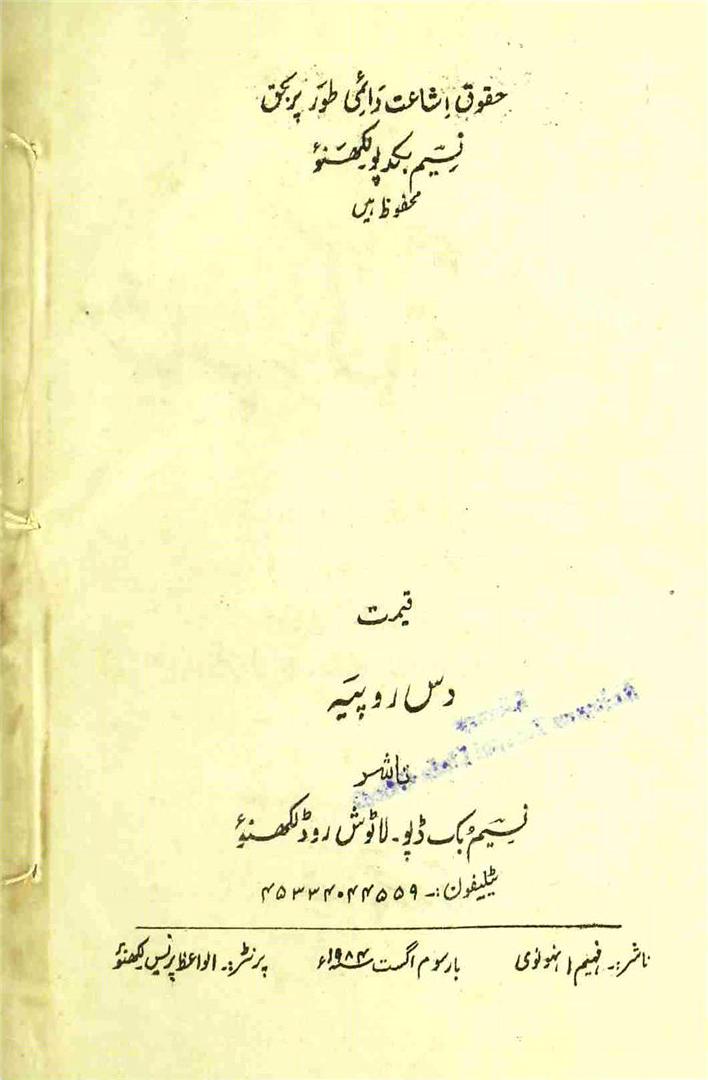 حقوق اشاعت دائمی طور پر بحق
نسیم بکڈپو لکھنؤ
محفوظ ہیں
قیمت
دس روپیہ
ناشر
نسیم بک ڈپو۔ لاٹوش روڈ لکھنؤ
ٹیلیفون:۔ ۴۵۳۳۴۰۴۴۵۵۹
ناشر:۔ فہیم انہونوی بار سوم اگست ۱۹۸۴ء پرنٹر:۔ الواعظ پریس لکھنؤ